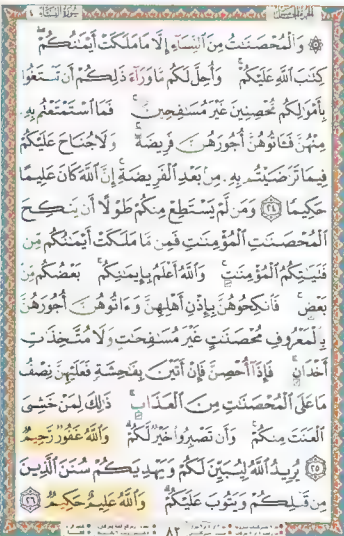 سُورَةُ النِّسَاءِ ٤
۞ وَالْمُحْصَنَاتُ مِنَ النِّسَاءِ إِلَّا مَا مَلَكَتْ أَيْمَانُكُمْ
كِتَابَ اللَّهِ عَلَيْكُمْ وَأُحِلَّ لَكُم مَّا وَرَاءَ ذَٰلِكُمْ أَن تَبْتَغُوا
بِأَمْوَالِكُم مُّحْصِنِينَ غَيْرَ مُسَافِحِينَ فَمَا اسْتَمْتَعْتُم بِهِ
مِنْهُنَّ فَآتُوهُنَّ أُجُورَهُنَّ فَرِيضَةً وَلَا جُنَاحَ عَلَيْكُمْ
فِيمَا تَرَاضَيْتُم بِهِ مِن بَعْدِ الْفَرِيضَةِ إِنَّ اللَّهَ كَانَ عَلِيمًا
حَكِيمًا ٢٤ وَمَن لَّمْ يَسْتَطِعْ مِنكُمْ طَوْلًا أَن يَنكِحَ
الْمُحْصَنَاتِ الْمُؤْمِنَاتِ فَمِن مَّا مَلَكَتْ أَيْمَانُكُم مِّن
فَتَيَاتِكُمُ الْمُؤْمِنَاتِ وَاللَّهُ أَعْلَمُ بِإِيمَانِكُم بَعْضُكُم مِّن
بَعْضٍ فَانكِحُوهُنَّ بِإِذْنِ أَهْلِهِنَّ وَآتُوهُنَّ أُجُورَهُنَّ
بِالْمَعْرُوفِ مُحْصَنَاتٍ غَيْرَ مُسَافِحَاتٍ وَلَا مُتَّخِذَاتِ
أَخْدَانٍ فَإِذَا أُحْصِنَّ فَإِنْ أَتَيْنَ بِفَاحِشَةٍ فَعَلَيْهِنَّ نِصْفُ
مَا عَلَى الْمُحْصَنَاتِ مِنَ الْعَذَابِ ذَٰلِكَ لِمَنْ خَشِيَ
الْعَنَتَ مِنكُمْ وَأَن تَصْبِرُوا خَيْرٌ لَّكُمْ وَاللَّهُ غَفُورٌ رَّحِيمٌ
٢٥ يُرِيدُ اللَّهُ لِيُبَيِّنَ لَكُمْ وَيَهْدِيَكُمْ سُنَنَ الَّذِينَ
مِن قَبْلِكُمْ وَيَتُوبَ عَلَيْكُمْ وَاللَّهُ عَلِيمٌ حَكِيمٌ ٢٦
٨٢